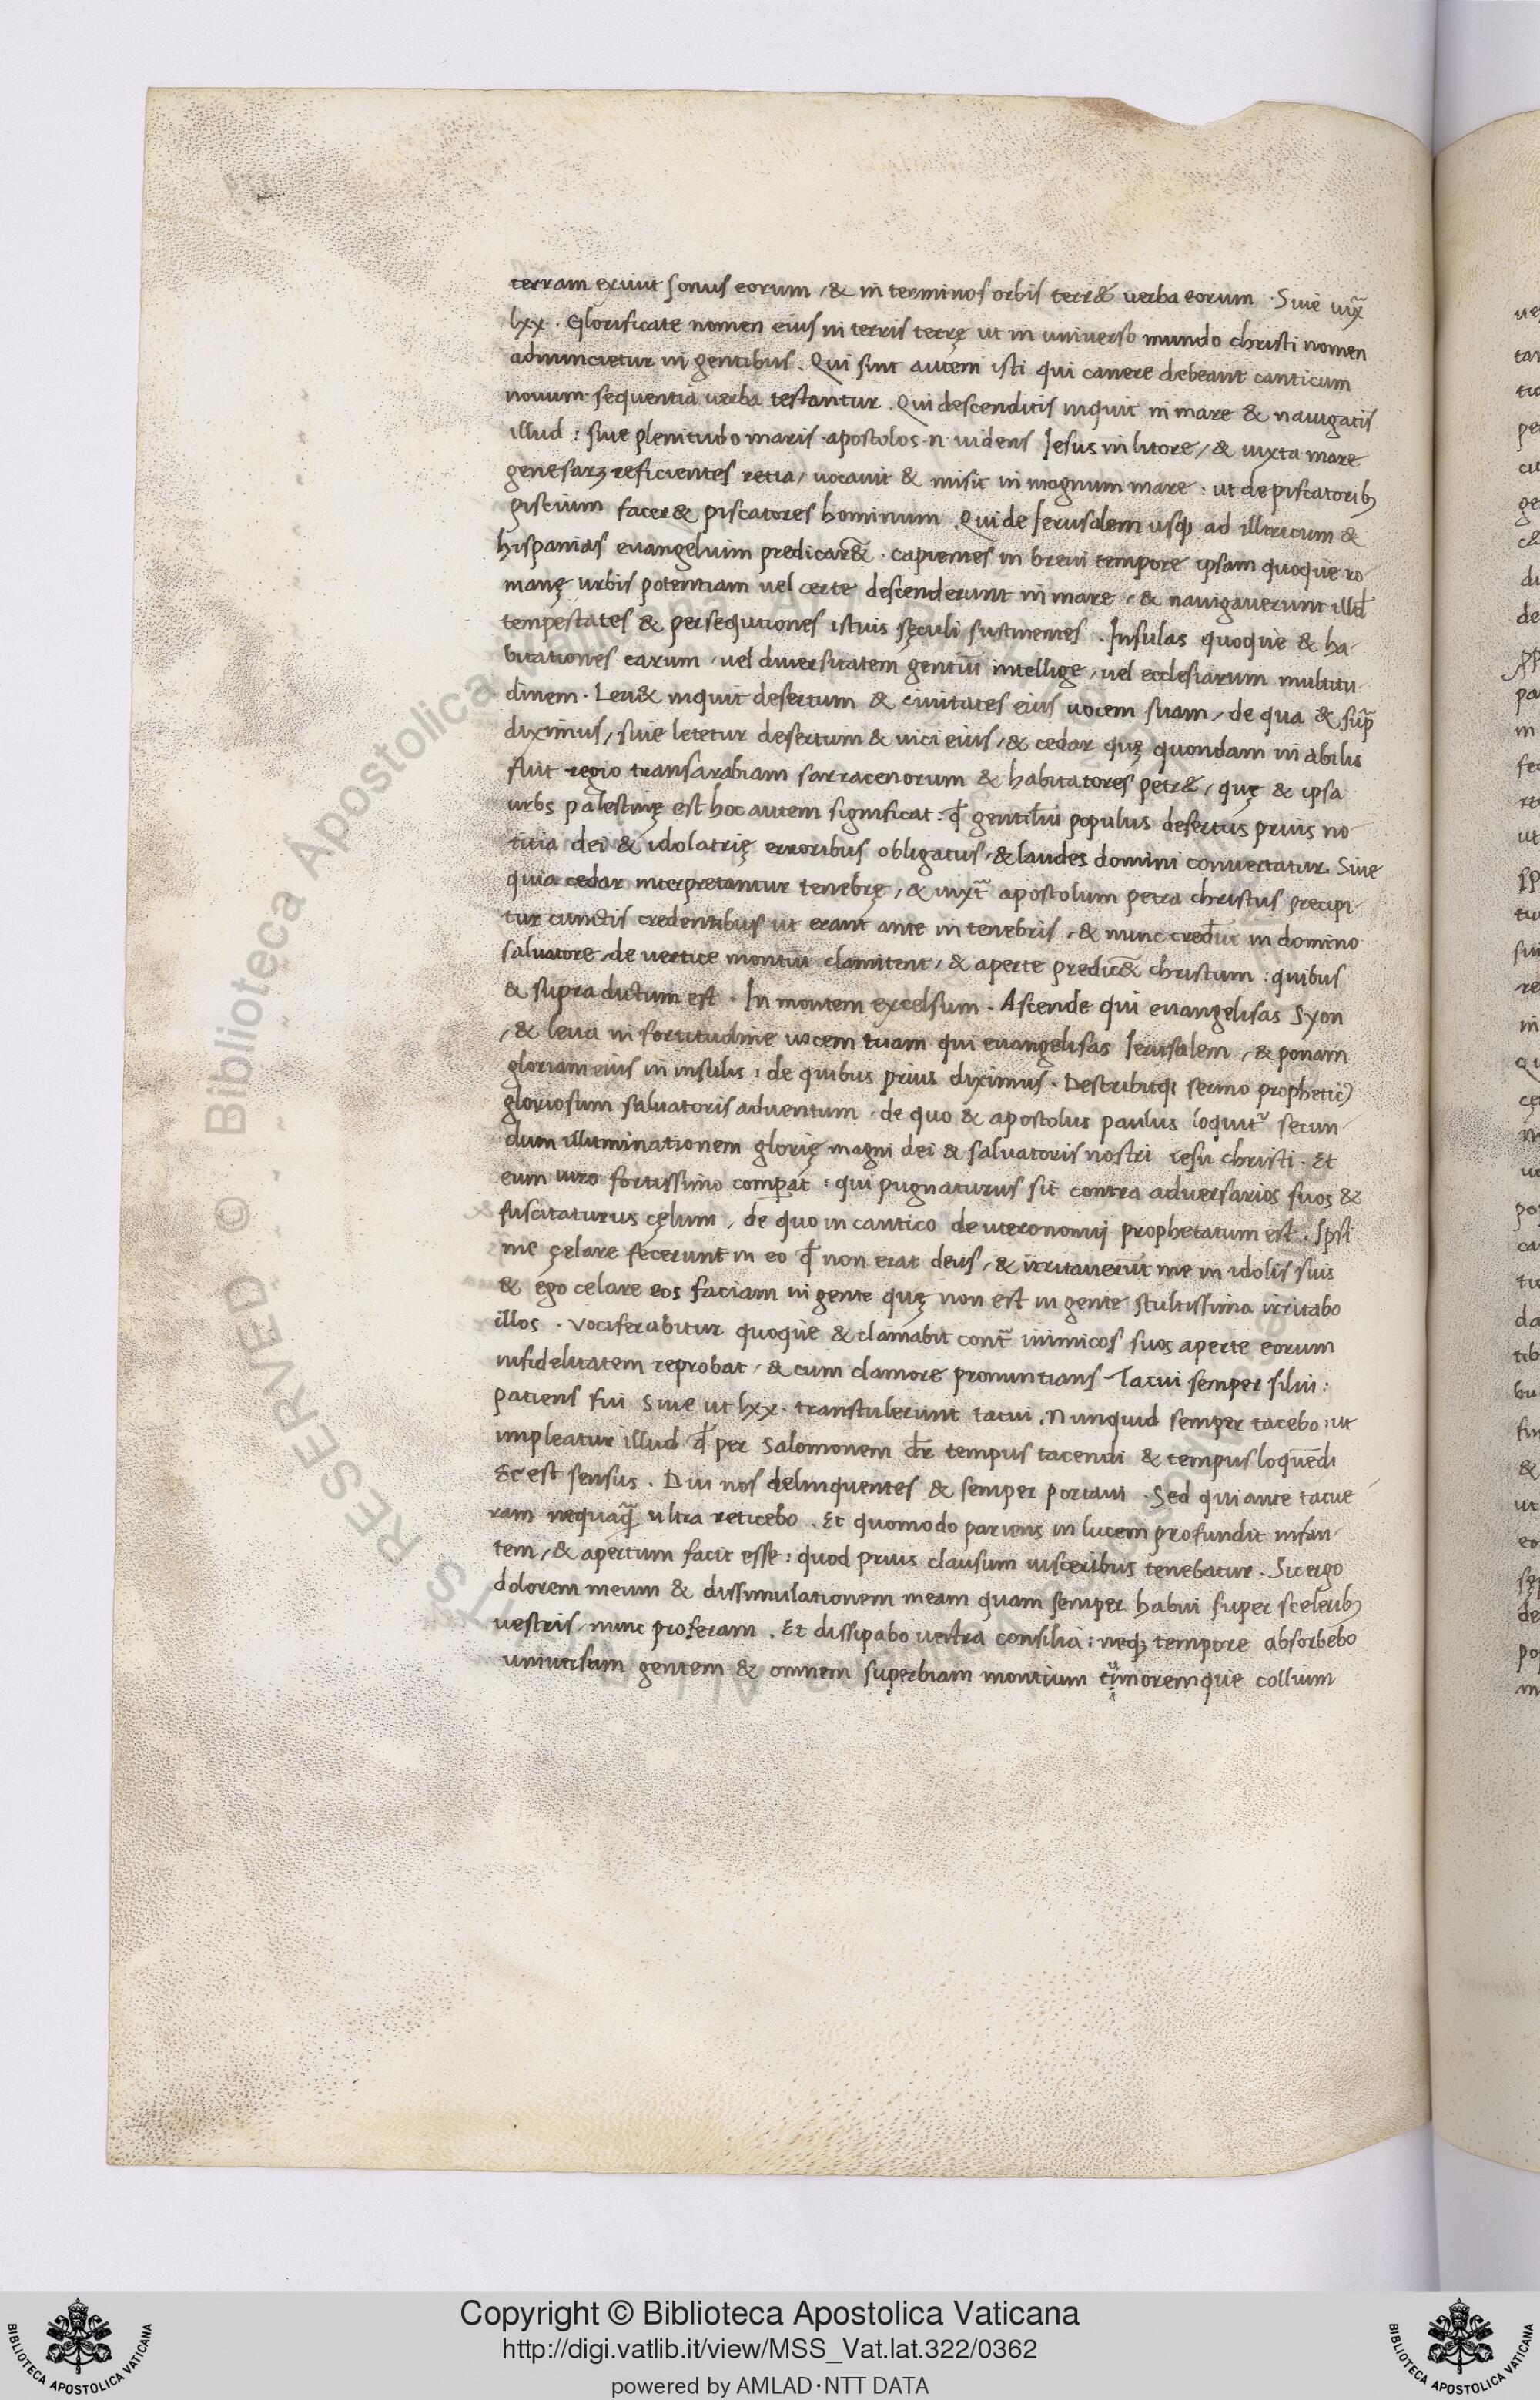 terram exiuit sonus eorum, & in terminos orbis terr& uerba eorum. Siue iuxͣ
lxx. Glorificate nomen eius in terris terrę ut in uniuerso mundo christi nomen
adnuncietur in gentibus. Qui sint autem isti qui canere debeant canticum
nouum sequentia uerba testantur. Qui descenditis inquit in mare & nauigatis
illud: siue plenitudo maris. apostolos. n. uidens Iesus in litore, & iuxta mare
genesarꝫ reficientes retia, uocauit & misit in magnum mare: ut de piscatoribꝫ
piscium facer& piscatores hominum. Qui de Ierusalem usqꝫ ad illiricum &
hispanias euangelium predicar&̄. capientes in breui tempore ipsam quoque ro-
manę urbis potentiam uel certe descenderunt in mare, & nauigauerunt illđ
tempestates & persequtiones istius sęculi sustinentes. Insulas quoque & ha-
bitationes earum, uel diuersitatem gentiū intellige, uel ecclesiarum multitu-
dinem. Leu& inquit desertum & ciuitates eius uocem suam, de qua & supͣ
diximus, siue letetur desertum & uici eius, & cedar quę quondam in abilis
fuit regio transarabiam sarracenorum & habitatores petr&, quę & ipsa
urbs palestinę est hoc autem significat: qđ gentiliū populus desertus prius no-
titia dei & idolatrię erroribus obligatus, & laudes domini conuertatur. Siue
quia cedar interpretantur tenebrę, & iuxtͣ apostolum petra christus precipi-
tur cunctis credentibus ut erant ante in tenebris, & nunc credūt in domino
saluatore, de uertice montiū clamitent, & aperte predic&̄ christum: quibus
& supra dictum est. In montem excelsum. Ascende qui euangelisas Syon
, & leua in fortitudine uocem tuam qui euangelisas Ierusalem, & ponam
gloriam eius in insulis: de quibus prius diximus. Describitqꝫ sermo propheticꝰ
gloriosum saluatoris aduentum, de quo & apostolus paulus loquit᷑ secun-
dum illuminationem glorię magni dei & saluatoris nostri iesu christi. Et
eum uiro fortissimo comꝑat: qui pugnaturus sit contra aduersarios suos &
suscitaturus cęlum, de quo in cantico deuteronomij prophetatum est. Ipsi
me çelare fecerunt in eo qđ non erat deus, & irritauerūt me in idolis suis
& ego celare eos faciam in gente quę non est in gente stultissima irritabo
illos. Vociferabitur quoque & clamabit contͣ inimicos suos aperte eorum
infidelitatem reprobat, & cum clamore pronuntians Tacui semper silui:
patiens fui Siue ut lxx. transtulerunt tacui. Nunquid semper tacebo: ut
impleatur illud qđ per Salomonem dr̄ tempus tacendi & tempus loquēdi
Et est sensus. Diu uos delinquentes & semper portaui. Sed qui ante tacue-
ram nequaqͣ̄ ultra reticebo. Et quomodo pariens in lucem profundit infan-
tem, & apertum facit esse: quod prius clausum uisceribus tenebatur. Sic ergo
dolorem meum & dissimulationem meam quam semper habui super sceleribꝫ
uestris, nunc proferam. Et dissipabo uestra consilia: neqꝫ tempore absorbebo
uniuersum gentem & omnem superbiam montium tumoremque collium